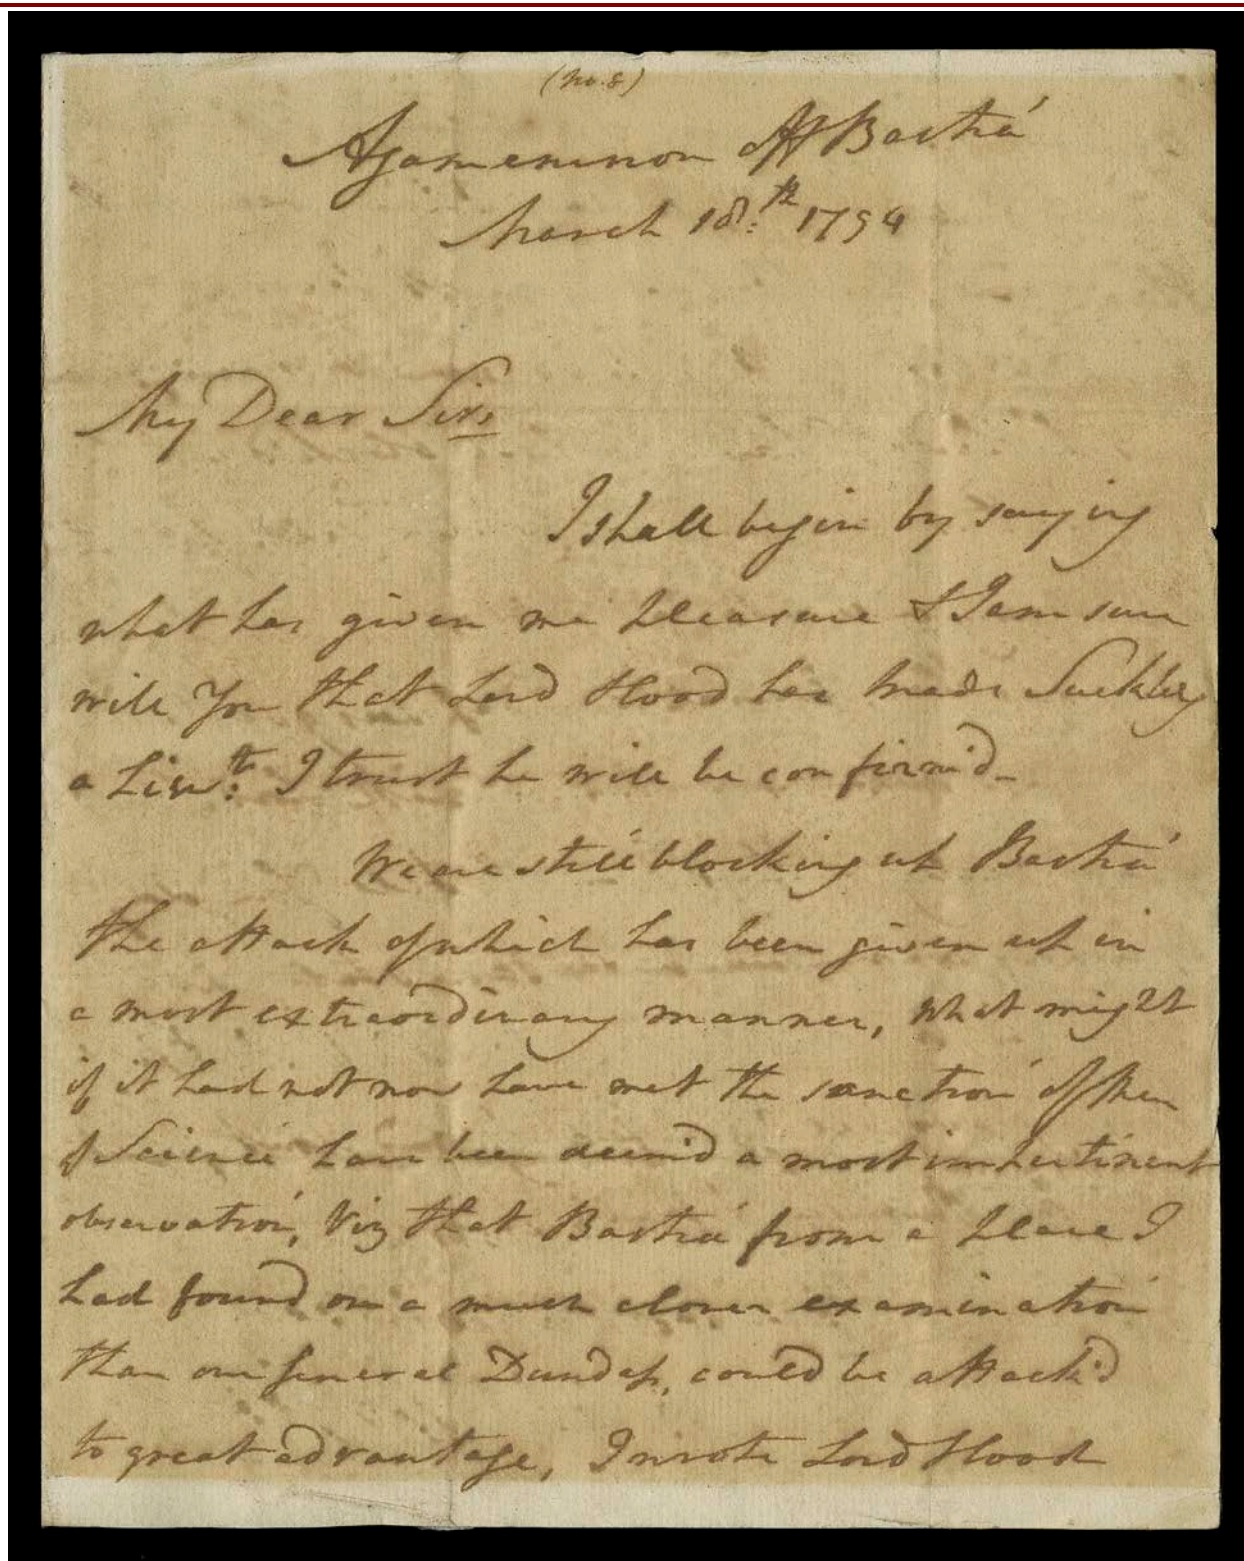 (No. 8)
Agamemnon off Bastia
March 18:th 1794
My Dear Sir,
I shall begin by saying
what has given me pleasure & I am sure
will You that Lord Hood has made Suckling
a Lieu:t I trust he will be confirm'd
We are still blocking up Bastia
the attack of which has been given up in
a most extraordinary manner, what might
if it had not now have met the sanction of Men
of Science have been deem'd a most impertinent
observation, Viz that Bastia from a place I
had found on a much closer examination
than our General Dundass, could be attack'd
to great advantage, I wrote Lord Hood